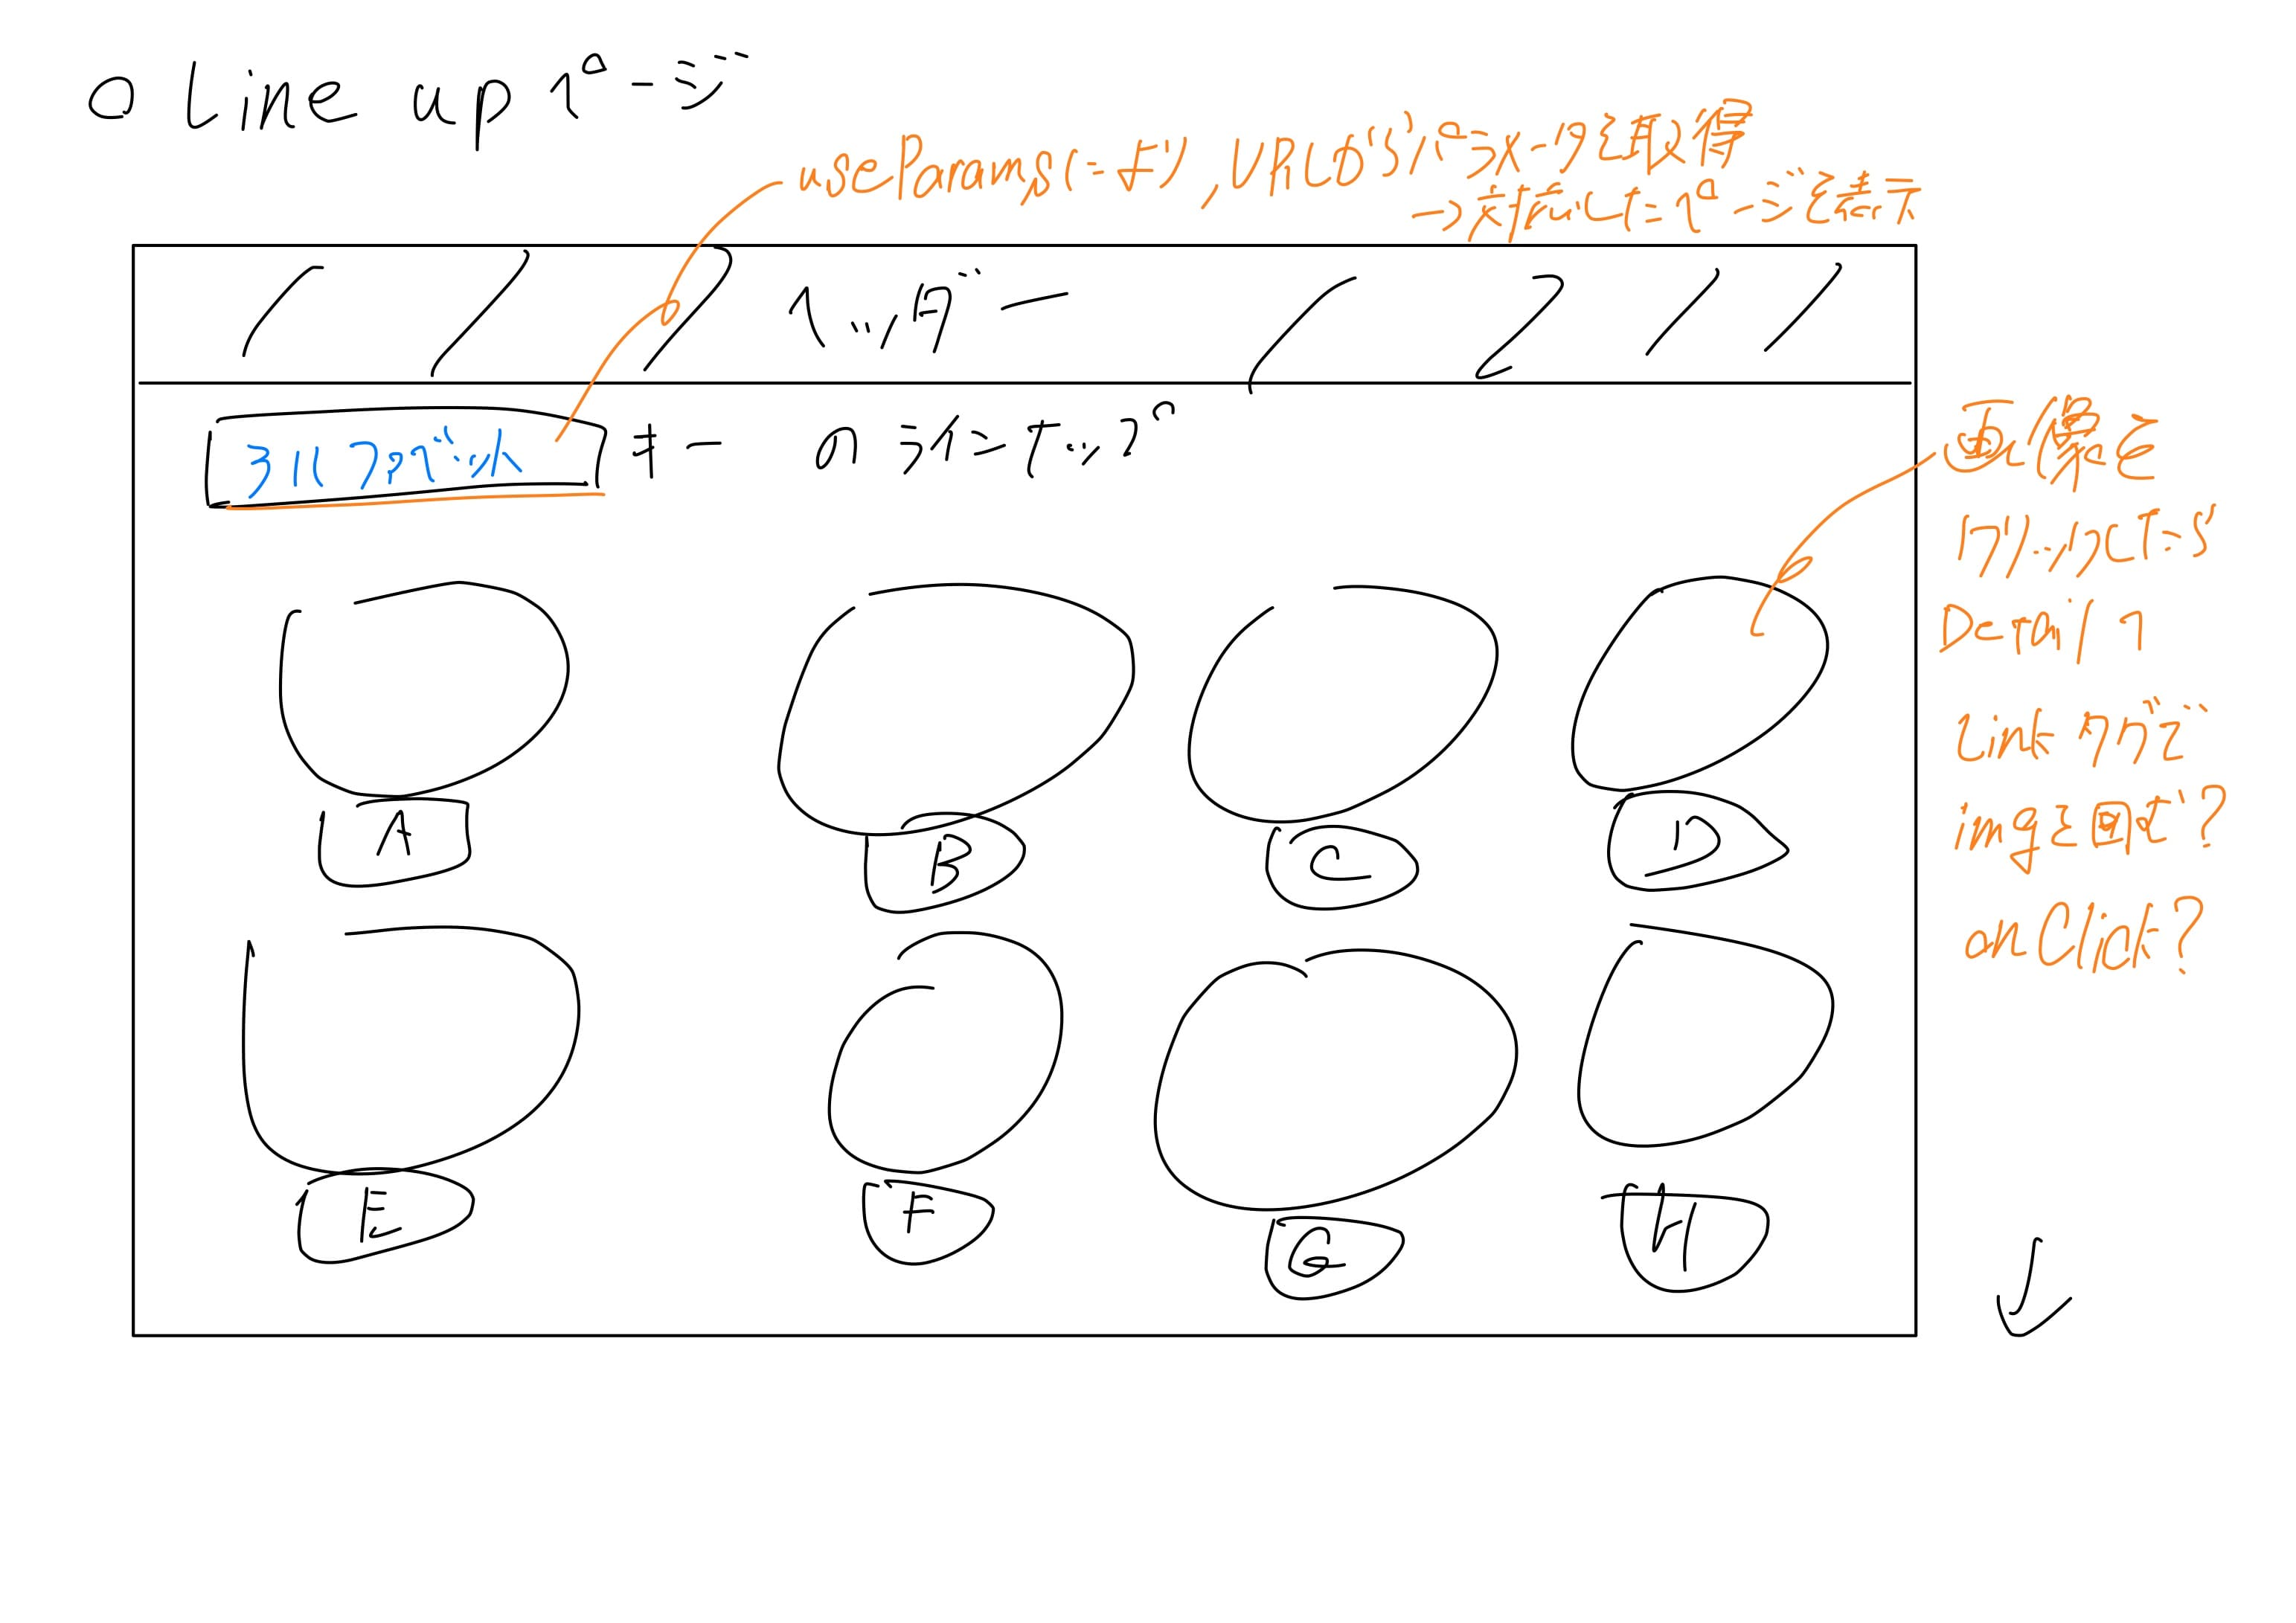 ○ Line up ページ
useParamsにより、URLからパラメータを取得
→対応したページを表示
ヘッダー
アルファベット キー のラインナップ
画像を
クリックしたら
Detailへ
A
B
C
D
Linkタグで
imgを囲む?
onClick?
E
F
G
H